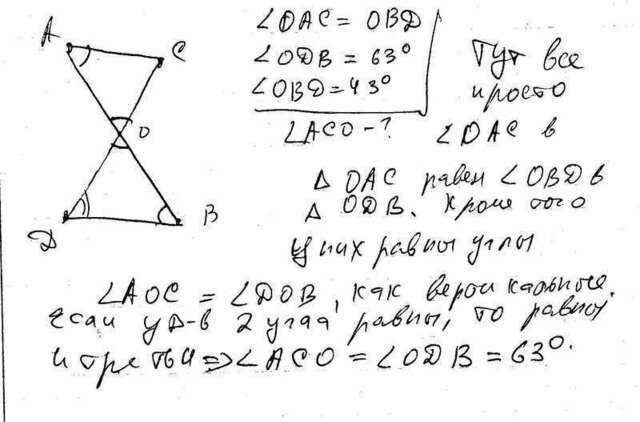 A
C
O
D
B
∠OAC = OBD
∠ODB = 63°
∠OBD = 43°
∠ACO - ?
Тут все
просто
∠OAC в
Δ OAC равен ∠OBD в
Δ ODB. Кроме того
у них равны углы
∠AOC = ∠DOB, как вертикальные.
если у Δ-в 2 угла равны, то равны
и третьи ⇒ ∠ACO = ∠ODB = 63°.